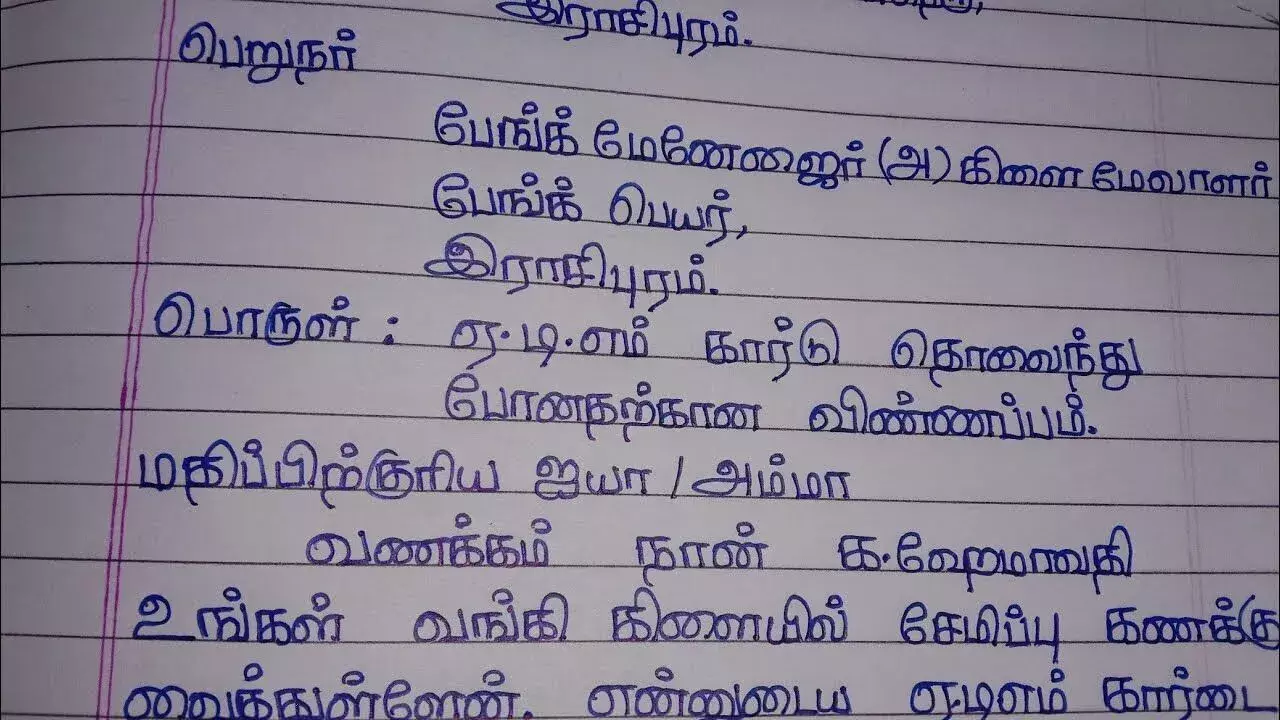 இராசிபுரம்.
பெறுநர்
பேங்க் மேனேஜர் (அ) கிளை மேலாளர்
பேங்க் பெயர்,
இராசிபுரம்.
பொருள் : ஏ.டி.எம் கார்டு தொலைந்து
போனதற்கான விண்ணப்பம்.
மதிப்பிற்குரிய ஐயா / அம்மா
வணக்கம் நான் க.ஹேமாவதி
உங்கள் வங்கி கிளையில் சேமிப்பு கணக்கு
வைத்துள்ளேன். என்னுடைய ஏடிஎம் கார்டை